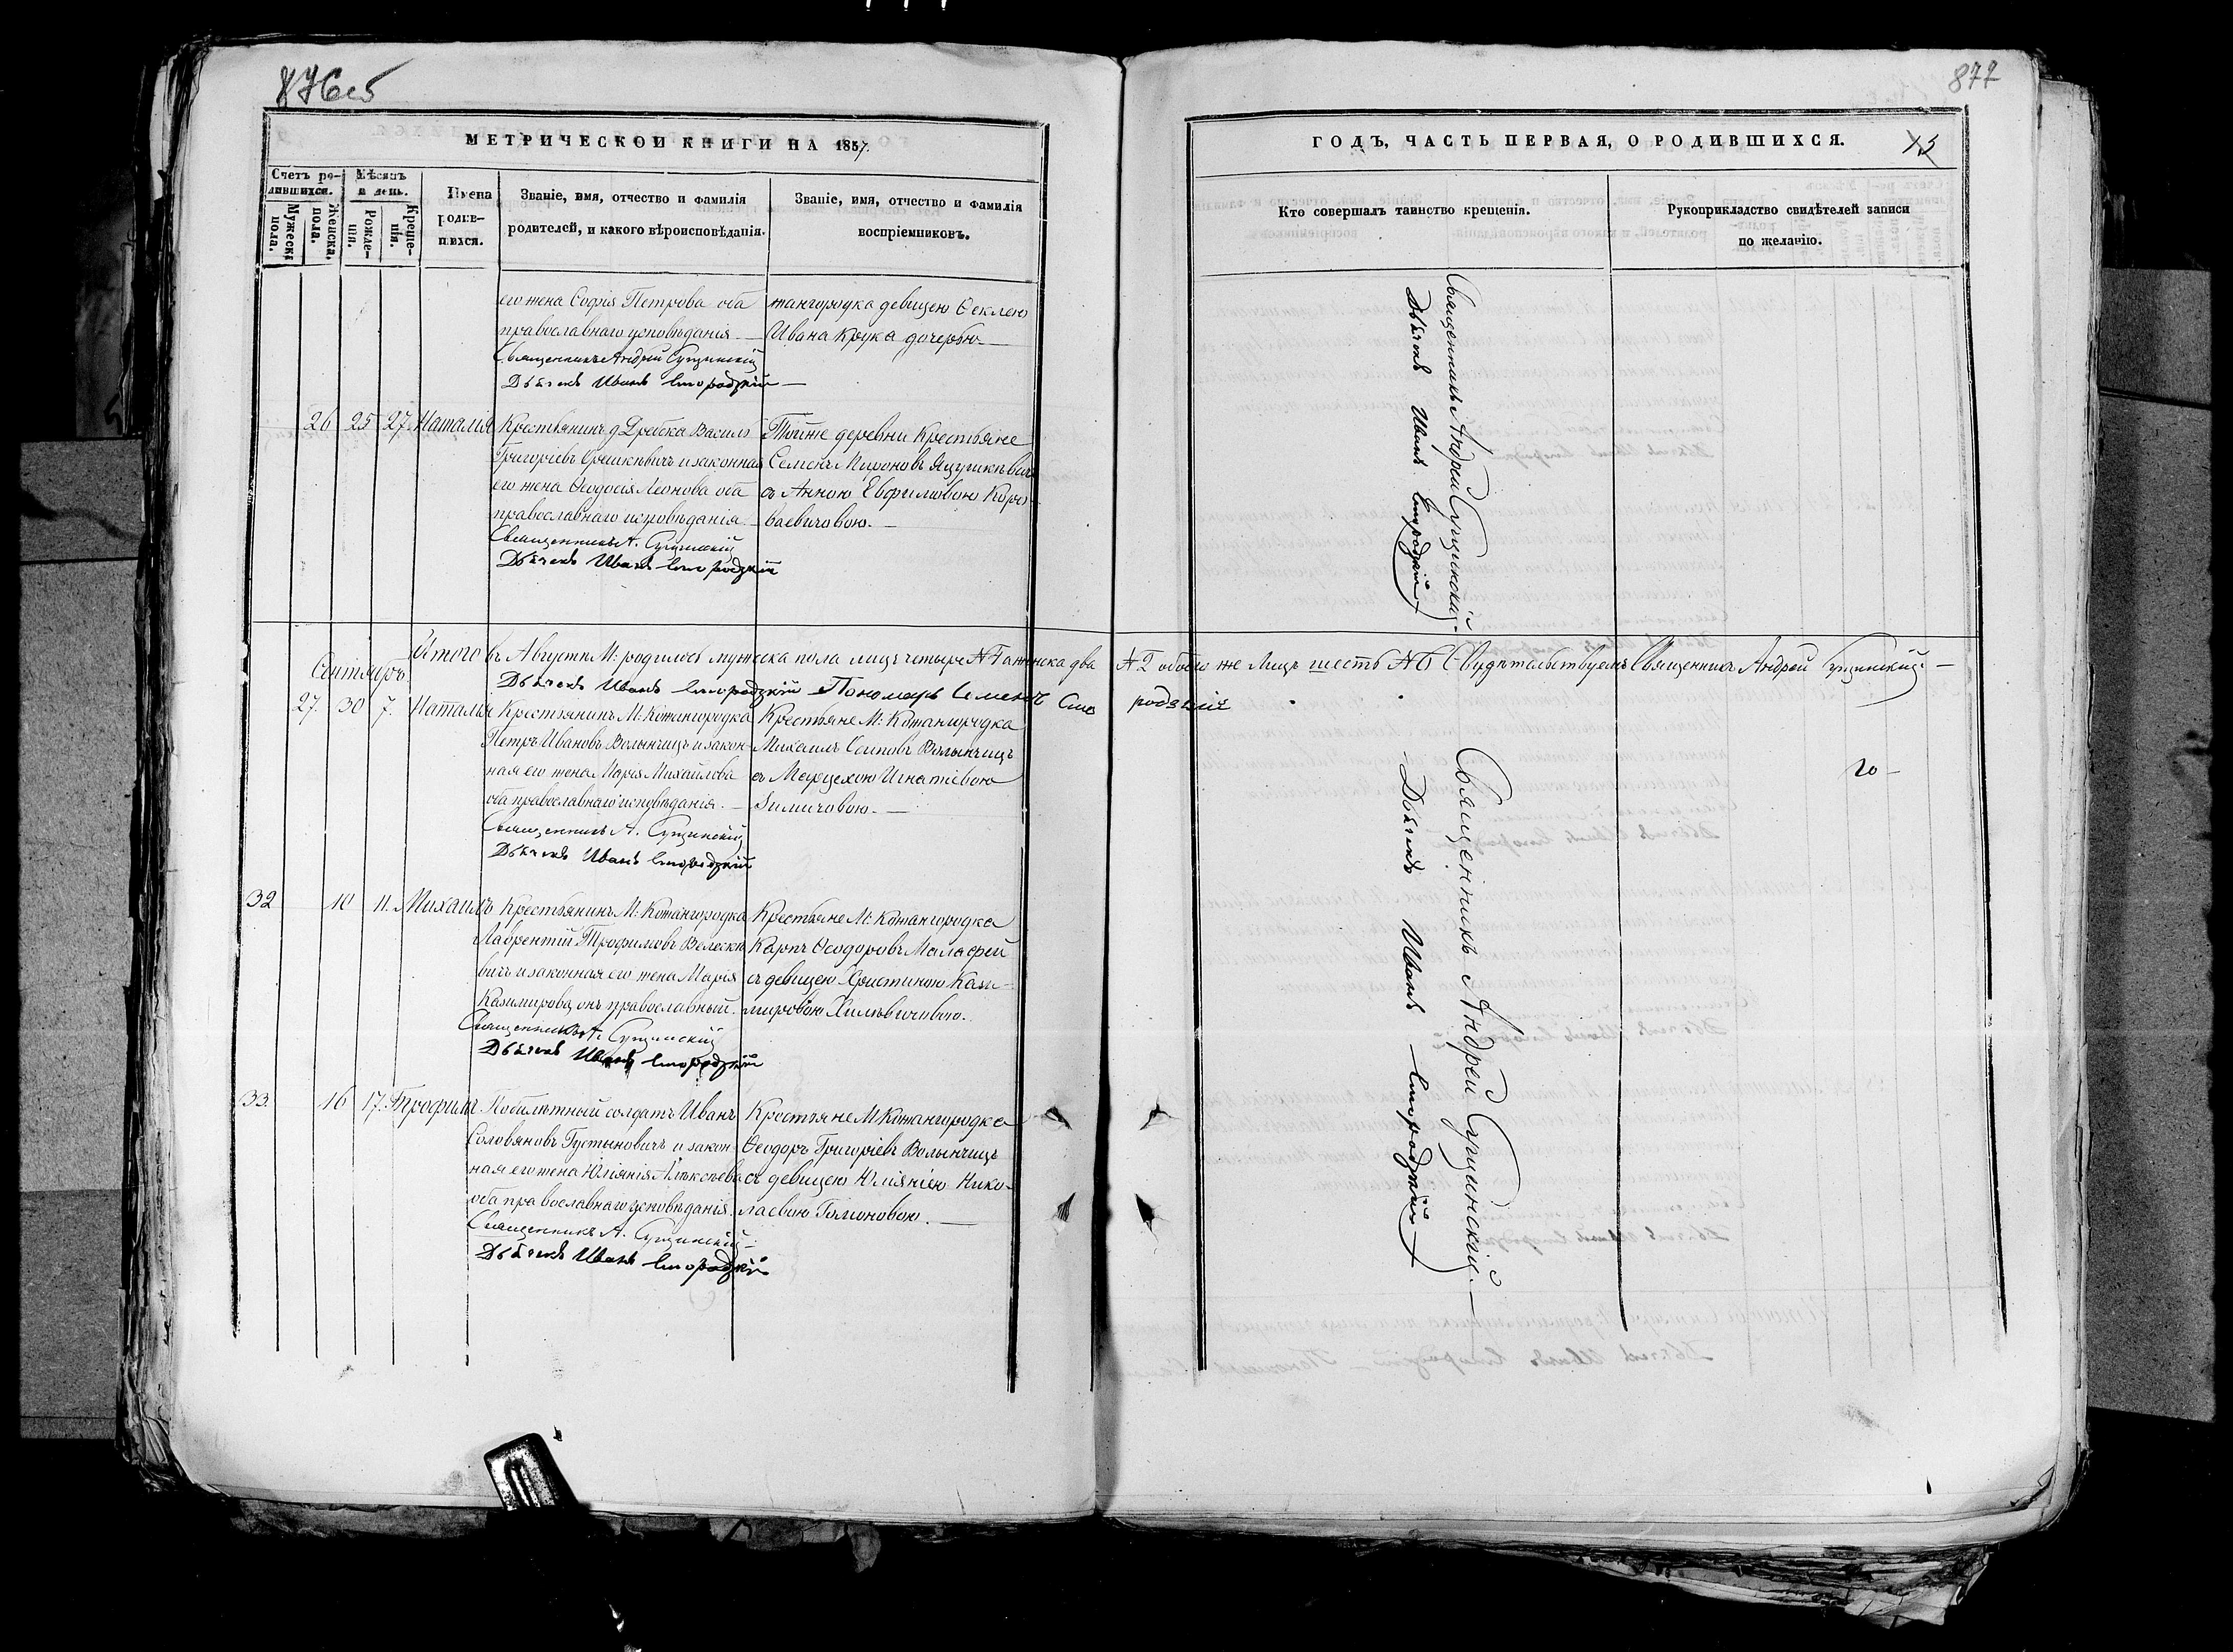 876об
877
МЕТРИЧЕСКОЙ КНИГИ НА 1857.
Счетъ ро-
дившихся.
Мѣсяцъ
и день.
Имена
родив-
шихся.
Званіе, имя, отчество и фамилія
родителей, и какого вѣроисповѣданія.
Званіе, имя, отчество и фамилія
воспріемниковъ.
Мужеска
пола.
Женска
пола.
Рожде-
нія.
Креще-
нія.
его жена Софія Петрова оба
православнаго исповѣданія. —
Священникъ Андрей Сущинскій
Дьячекъ Иванъ Снородзкій —
тангородка девицею Ѳеклею
Ивана Крука дочерью. —
26 25 27. Наталія
Крестьянинъ д. Дребска Василь
Григоріевъ Орешкѣвичъ и законная
его жена Ѳеодосія Леонова оба
православнаго исповѣданія. —
Священникъ А. Сущинскій
Дьячекъ Иванъ Снородзкій
Тойже деревни Крестьяне
Семенъ Мироновъ Яцушкѣвичъ
съ Анною Евфимовою Коро-
баевичовою. —
Итого въ Августѣ М: родилось мужеска пола лицъ четыре № 4 женска два
Сентябрь
Дьячекъ Иванъ Снородзкій Пономарь Семенъ Сно
27. 30 7. Наталія
Крестьянинъ М: Кожангородка
Петръ Ивановъ Волынчицъ и закон-
ная его жена Марія Михайлова
оба православнаго исповѣданія. —
Священникъ А. Сущинскій
Дьячекъ Иванъ Снородзкій
Крестьяне М: Кожангородка
Михаилъ Осиповъ Волынчицъ
съ Марцехою Игнатіевою
Зиличовою. —
32 10 11. Михаилъ
Крестьянинъ М: Кожангородка
Лаврентій Трофимовъ Велеске-
вичъ и законная его жена Марія
Казимирова, онъ православный.
Священникъ А. Сущинскій
Дьячекъ Иванъ Снородзкій
Крестьяне М: Кожангородка
Карпъ Ѳеодоровъ Малафей
съ девицею Христиною Кази-
мировою Хилькевичовою.
33. 16 17. Трофимъ
Побилѣтный солдатъ Иванъ
Соловяновъ Густыновичъ и закон-
ная его жена Юліянія Алексѣева
оба православнаго исповѣданія.
Священникъ А. Сущинскій —
Дьячекъ Иванъ Снородзкій
Крестьяне М Кожангородка
Ѳеодоръ Григоріевъ Волынчицъ
съ девицею Юліяніею Нико-
лаевою Гамоновою. —
ГОДЪ, ЧАСТЬ ПЕРВАЯ, О РОДИВШИХСЯ.
Кто совершалъ таинство крещенія.
Рукоприкладство свидѣтелей записи
по желанію.
Священникъ Андрей Сущинскій —
Дьячекъ Иванъ Снородзкій
№ 2 обоего же лицъ шесть № 6 Свидѣтельствуемъ Священникъ Андрей Сущинскій —
родзкій
Священникъ Андрей Сущинскій —
Дьячекъ Иванъ Снородзкій